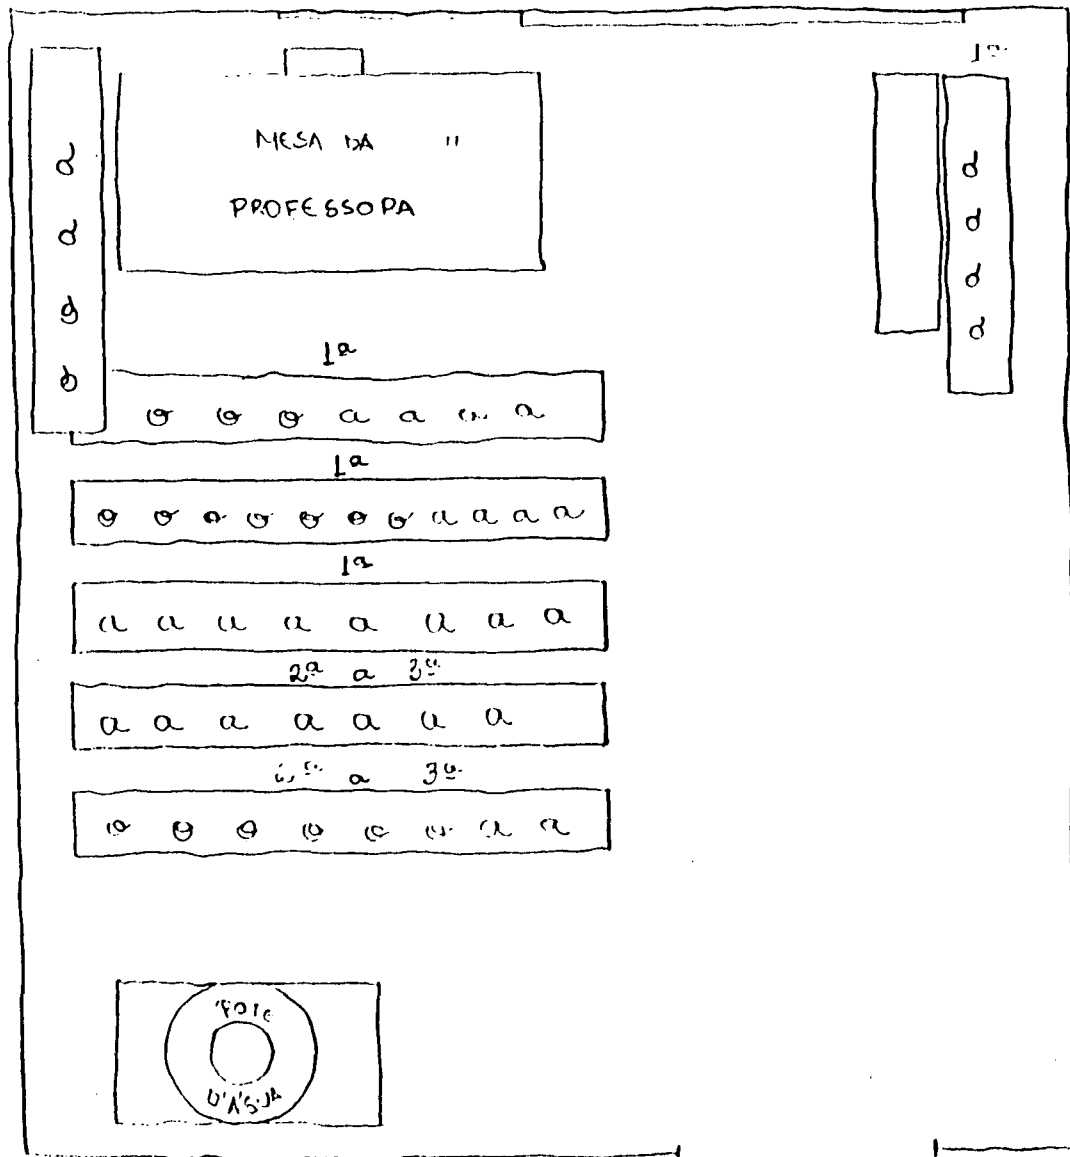 1ª
MESA DA "
PROFESSORA
a
a
o
o
a
a
a
a
1ª
o o o a a a a
1ª
o o o o o o o a a a a
1ª
a a a a a a a a
2ª a 3ª
a a a a a a a
a 3ª
o o o o o o a a
POTE
D'ÁGUA